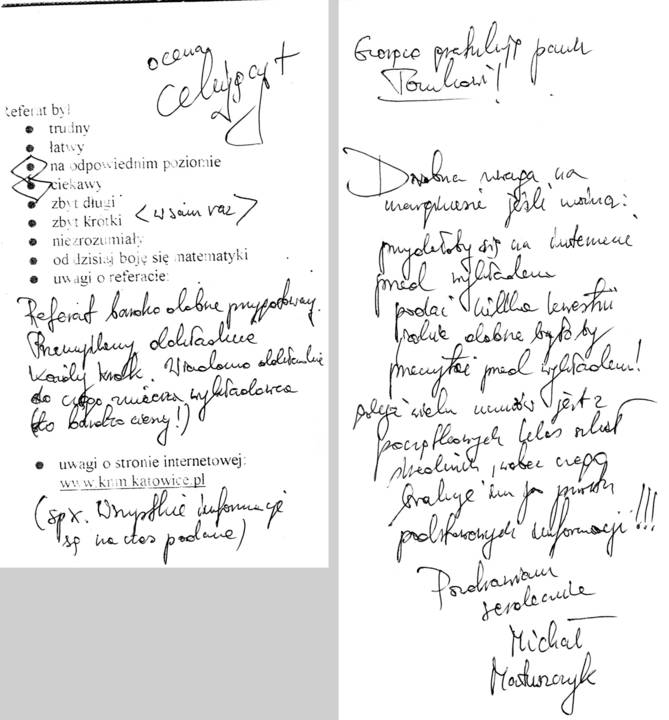 ocena
celujący +
Referat był
trudny
łatwy
na odpowiednim poziomie
ciekawy
zbyt długi
zbyt krótki < w sam raz >
niezrozumiały
od dzisiaj boję się matematyki
uwagi o referacie:
Referat bardzo dobrze przygotowany.
Przemyślany dokładnie
każdy krok. Wiadomo dokładnie
do czego zmierza wykładowca
(to bardzo cenny!)
uwagi o stronie internetowej:
www.knm.katowice.pl
(spx. Wszystkie informacje
są na czas podane)
Gorąco gratuluję panu
Tomkowi!
Drobna uwaga na
marginesie jeśli można:
przydałoby się na internecie
przed wykładem
podać kilka kwestii
które dobrze byłoby
przeczytać przed wykładem!
gdyż wielu uczniów jest z
początkowych klas szkół
średnich, wobec czego
brakuje im po prostu
podstawowych informacji!!!
Pozdrawiam
serdecznie
Michał